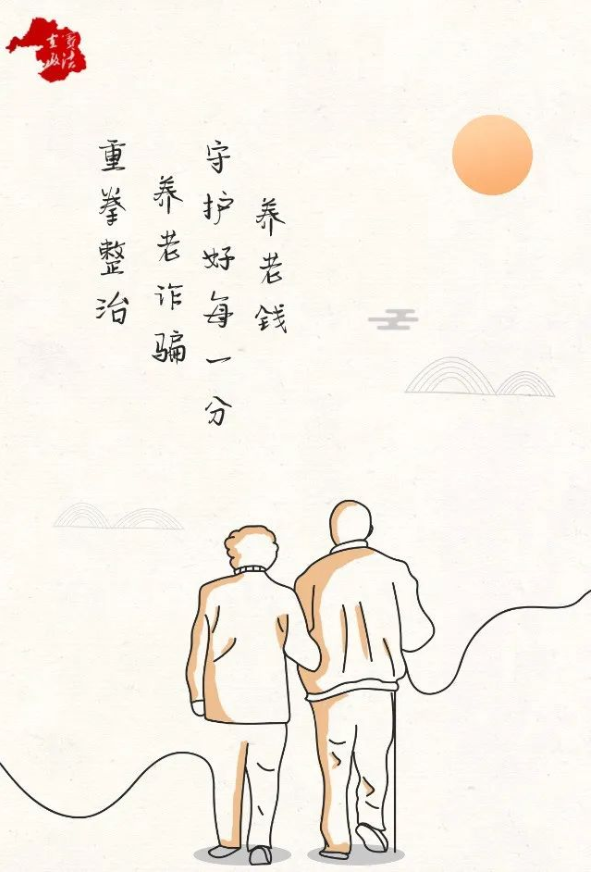 重拳整治
养老诈骗
守护好每一分
养老钱